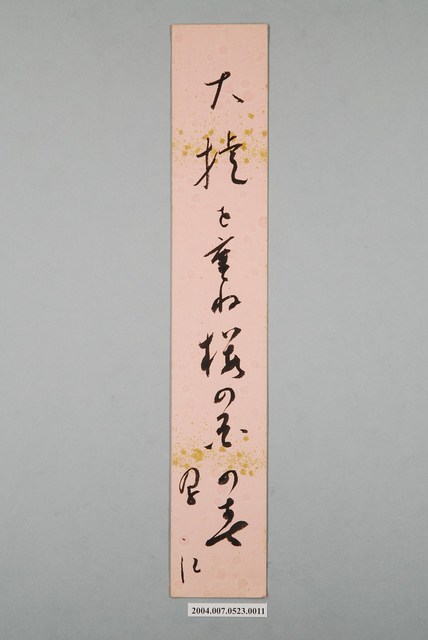 大捷を重ね桜の国の春
江
2004.007.0523.0011